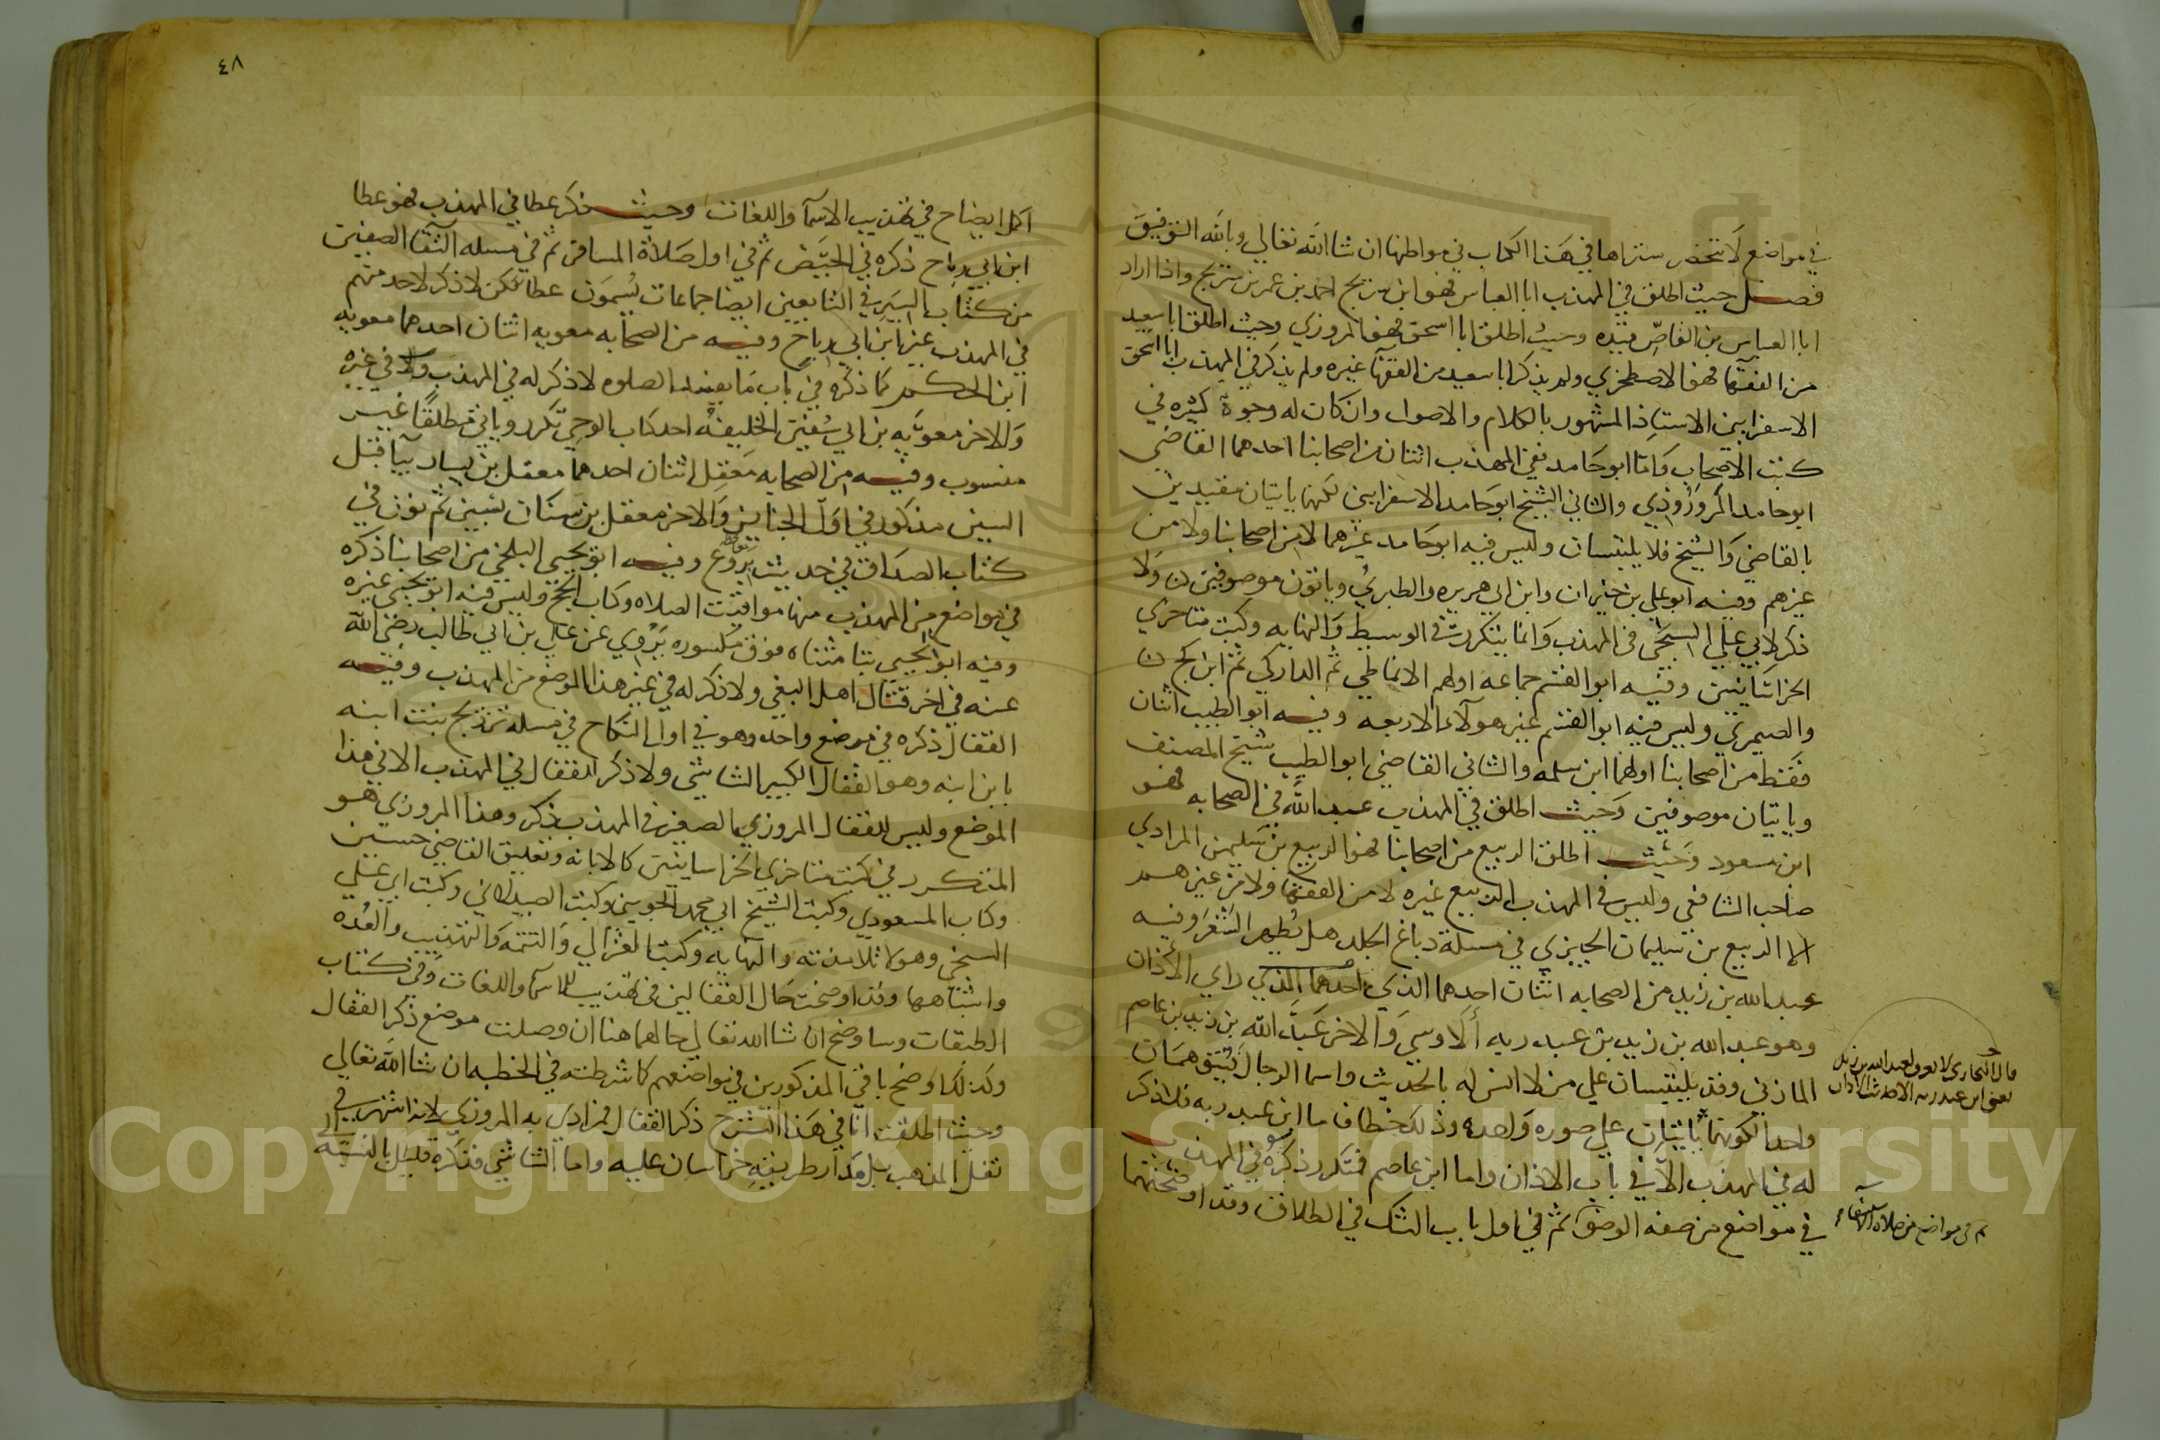 في مواضع لا تنحصر ستراها في هذا الكتاب في مواطنها ان شا الله تعالي وبالله التوفيق
فصل حيث اطلق في المهذب ابا العباس فهو ابن سريج احمد بن عمر بن سريج واذا اراد
ابا العباس بن القاص قيده وحيث اطلق ابا اسحق فهو المروزي وحيث اطلق ابا سعيد
من الفقها فهو الاصطخري ولم يذكر ابا سعيد من الفقها غيره ولم يذكر في المهذب ابا اسحق
الاسفرايني الاستاذ المشهور بالكلام والاصول وان كان له وجوه كثيره في
كتب الاصحاب واما ابو حامد ففي المهذب اثنان من اصحابنا احدهما القاضي
ابو حامد المروروذي والثاني الشيخ ابو حامد الاسفرايني لكنهما ياتيان مقيدين
بالقاضي والشيخ فلا يلتبسان وليس فيه ابو حامد غيرهما لا من اصحابنا ولا من
غيرهم وفيه ابو علي بن خيران وابن ابي هريره والطبري وياتون موصوفين ولا
ذكر لابي علي السنجي في المهذب وانما يتكرر في الوسيط والنهايه وكتب متاخري
الخراسانيين وفيه ابو القسم جماعه اولهم الانماطي ثم الداركي ثم ابن كج
والصيمري وليس فيه ابو القسم غير هولاء الاربعه وفيه ابو الطيب اثنان
فقط من اصحابنا اولهما ابن سلمه والثاني القاضي ابو الطيب شيخ المصنف
وياتيان موصوفين وحيث اطلق في المهذب عبد الله في الصحابه فهو
ابن مسعود وحيث اطلق الربيع من اصحابنا فهو الربيع بن سليمن المرادي
صاحب الشافعي وليس في المهذب الربيع غيره لا من الفقها ولا من غيرهم
الا الربيع بن سليمان الجيزي في مسلة دباغ الجلد هل يطهر الشعر وفيه
عبد الله بن زيد من الصحابه اثنان احدهما الذي احدهما الذي راي الاذان
وهو عبد الله بن زيد بن عبد ربه الاوسي والاخر عبد الله بن زيد بن عاصم
المازني وقد يلتبسان علي من لا انس له بالحديث واسما الرجال فيتوهمان
واحدا لكونهما ياتيان علي صوره واحده وذلك خطا فاما ابن عبد ربه فلا ذكر
له في المهذب الا في باب الاذان واما ابن عاصم فتكرر ذكره في المهذب
في مواضع من صفه الوضو ثم في اول باب الشك في الطلاق وقد اوضحتهما
قال البخاري لا يعرف لعبد الله بن زيد
يعني ابن عبد ربه الا حديث الاذان
ثم في مواضع من صلاه الاستسقاء
٤٨
اكمل ايضاح في تهذيب الاسما واللغات وحيث ذكر عطا في المهذب فهو عطا
ابن ابي رباح ذكره في الحيض ثم في اول صلاة المسافر ثم في مسله التقا الصفين
من كتاب السير في التابعين ايضا جماعات يسمون عطا لكن لا ذكر لاحد منهم
في المهذب غير ابن ابي رباح وفيه من الصحابه معويه اثنان احدهما معويه
ابن الحكم كما ذكره في باب ما يفسد الصلوه لا ذكر له في المهذب ولا في غيره
والاخر معويه بن ابي سفين الخليفه احد كتاب الوحي تكرر وياتي مطلقا غير
منسوب وفيه من الصحابه معقل اثنان احدهما معقل بن يسار بيا قبل
السين مذكور في اول الجنايز والاخر معقل بن سنان بسين ثم نون في
كتاب الصداق في حديث بروع وفيه ابو يحيي البلخي من اصحابنا ذكره
في مواضع من المهذب منها مواقيت الصلاه وكتاب الحج وليس فيه ابو يحيي غيره
وفيه ابو تحيي بتا مثناه فوق مكسوره يروي عن علي بن ابي طالب رضي الله
عنه في اخر قتال اهل البغي ولا ذكر له في غير هذا الموضع من المهذب وفيه
القفال ذكره في موضع واحد وهو في اول النكاح في مسله تزويج بنت ابنه
بابن ابنه وهو القفال الكبير الشاشي ولا ذكر للقفال في المهذب الا في هذا
الموضع وليس للقفال المروزي الصغير في المهذب ذكر وهذا المروزي هو
المتكرر في كتب متاخري الخراسانيين كالابانه وتعليق القاضي حسين
وكتاب المسعودي وكتب الشيخ ابي محمد الجويني وكتب الصيدلاني وكتب ابي علي
السنجي وهولا تلامذته والنهايه وكتب الغزالي والتتمه والتهذيب والعده
واشباهها وقد اوضحت حال القفالين في تهذيب الاسما واللغات وفي كتاب
الطبقات وساوضح ان شا الله تعالي حالهما هنا ان وصلت موضع ذكر القفال
وكذلك اوضح باقي المذكورين في مواضعهم كما شرطته في الخطبه ان شا الله تعالي
وحيث اطلقت انا في هذا الشرح ذكر القفال فمرادي به المروزي لانه اشهر في
نقل المذهب بل مدار طريقه خراسان عليه واما الشاشي فذكره قليل بالنسبه